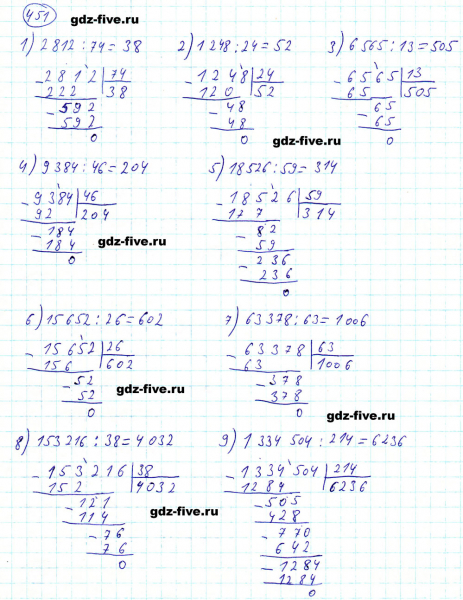 451 gdz-five.ru
1) 2812 : 74 = 38
- 2812 | 74
222 | 38
- 592
592
0
2) 1248 : 24 = 52
- 1248 | 24
120 | 52
- 48
48
0
3) 6565 : 13 = 505
- 6565 | 13
65 | 505
- 65
65
0
gdz-five.ru
4) 9384 : 46 = 204
- 9384 | 46
92 | 204
- 184
184
0
gdz-five.ru
5) 18526 : 59 = 314
- 18526 | 59
177 | 314
- 82
59
- 236
236
0
6) 15652 : 26 = 602
- 15652 | 26
156 | 602
- 52
52
0
gdz-five.ru
7) 63378 : 63 = 1006
- 63378 | 63
63 | 1006
- 378
378
0
gdz-five.ru
8) 153216 : 38 = 4032
- 153216 | 38
152 | 4032
- 121
114
- 76
76
0
gdz-five.ru
9) 1334504 : 214 = 6236
- 1334504 | 214
1284 | 6236
- 505
428
- 770
642
- 1284
1284
0
gdz-five.ru